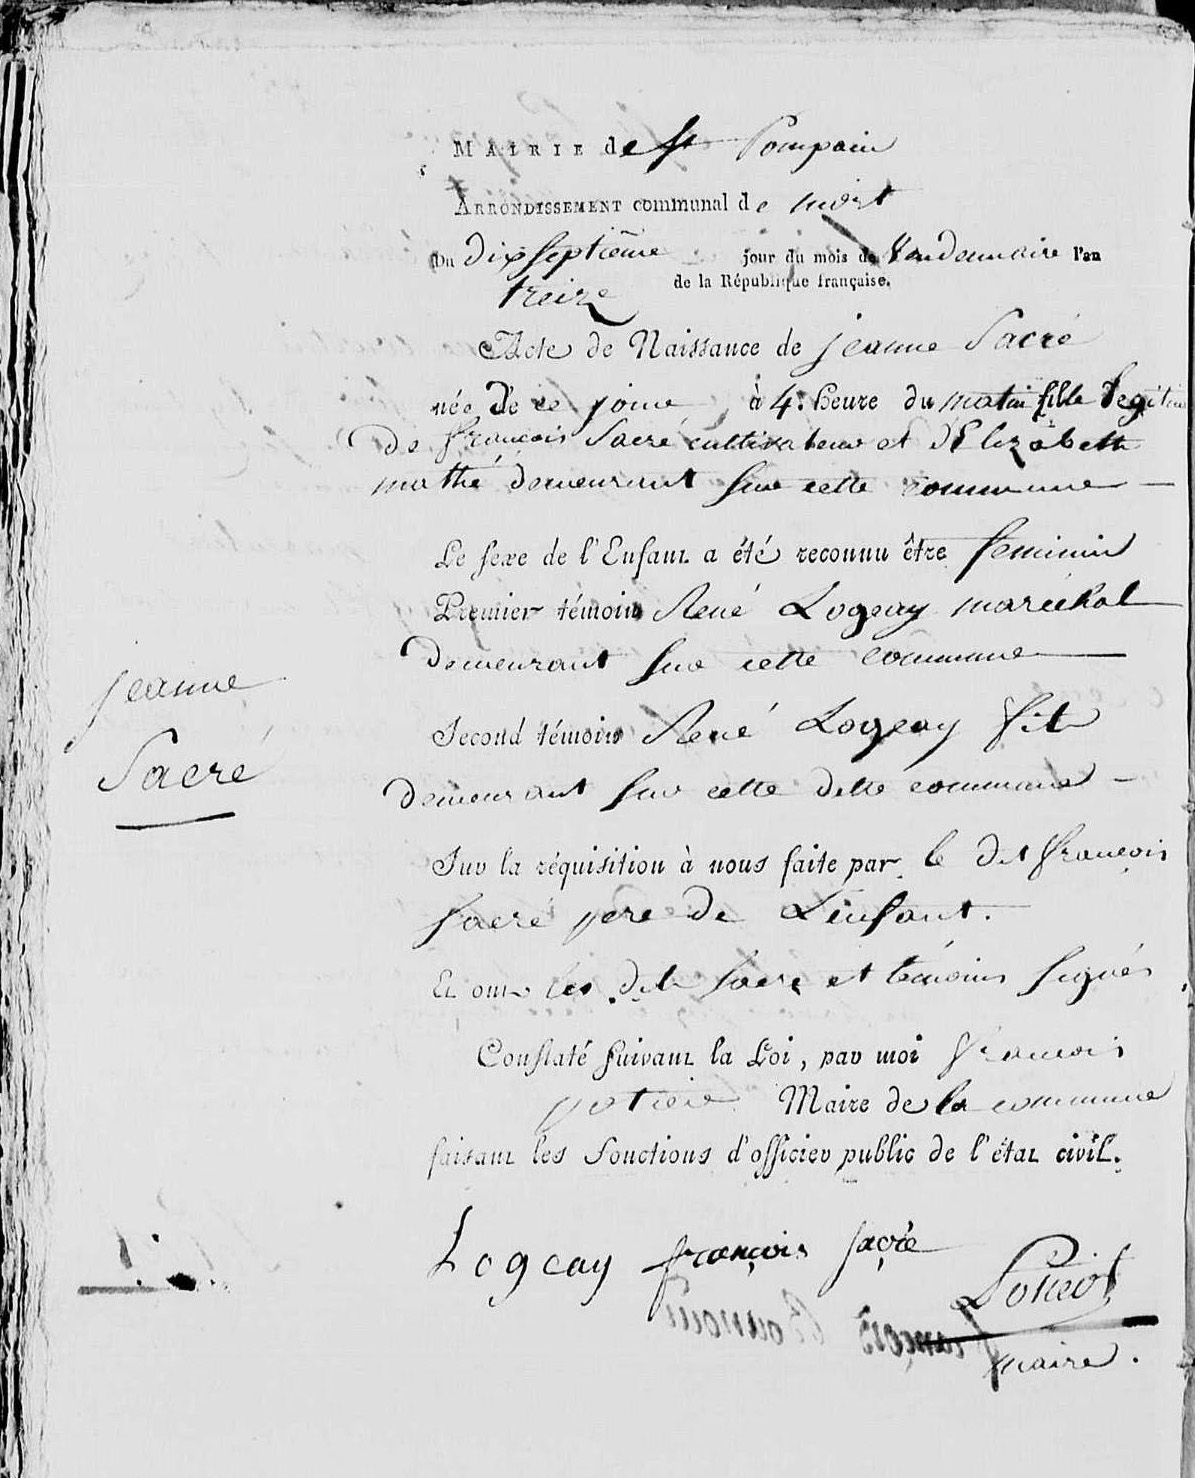 MAIRIE de St Pompain
ARRONDISSEMENT communal de niort
Du dixseptième jour du mois de Vendemiaire l'an
treize de la République française.
Acte de Naissance de jeanne Sacré
née De ce jour à 4. heure du matin fille Legitime
De françois Sacré cultivateur et D'Elizabeth
mathé demeurant Sur cette commune
Le sexe de l'Enfant a été reconnu être feminin
Premier témoin René Logeay maréchal
Demeurant Sur cette commune
jeanne
Sacré
Second témoin René Logeay fils
demeurant Sur cette dette commune
Sur la réquisition à nous faite par le dit françois
Sacré pere de L'enfant.
Et ont les dits Sacré et témoins signés
Constaté suivant la Loi, par moi françois
Maire de la commune
faisant les fonctions d'officier public de l'état civil.
Logeay françois sacré
maire.